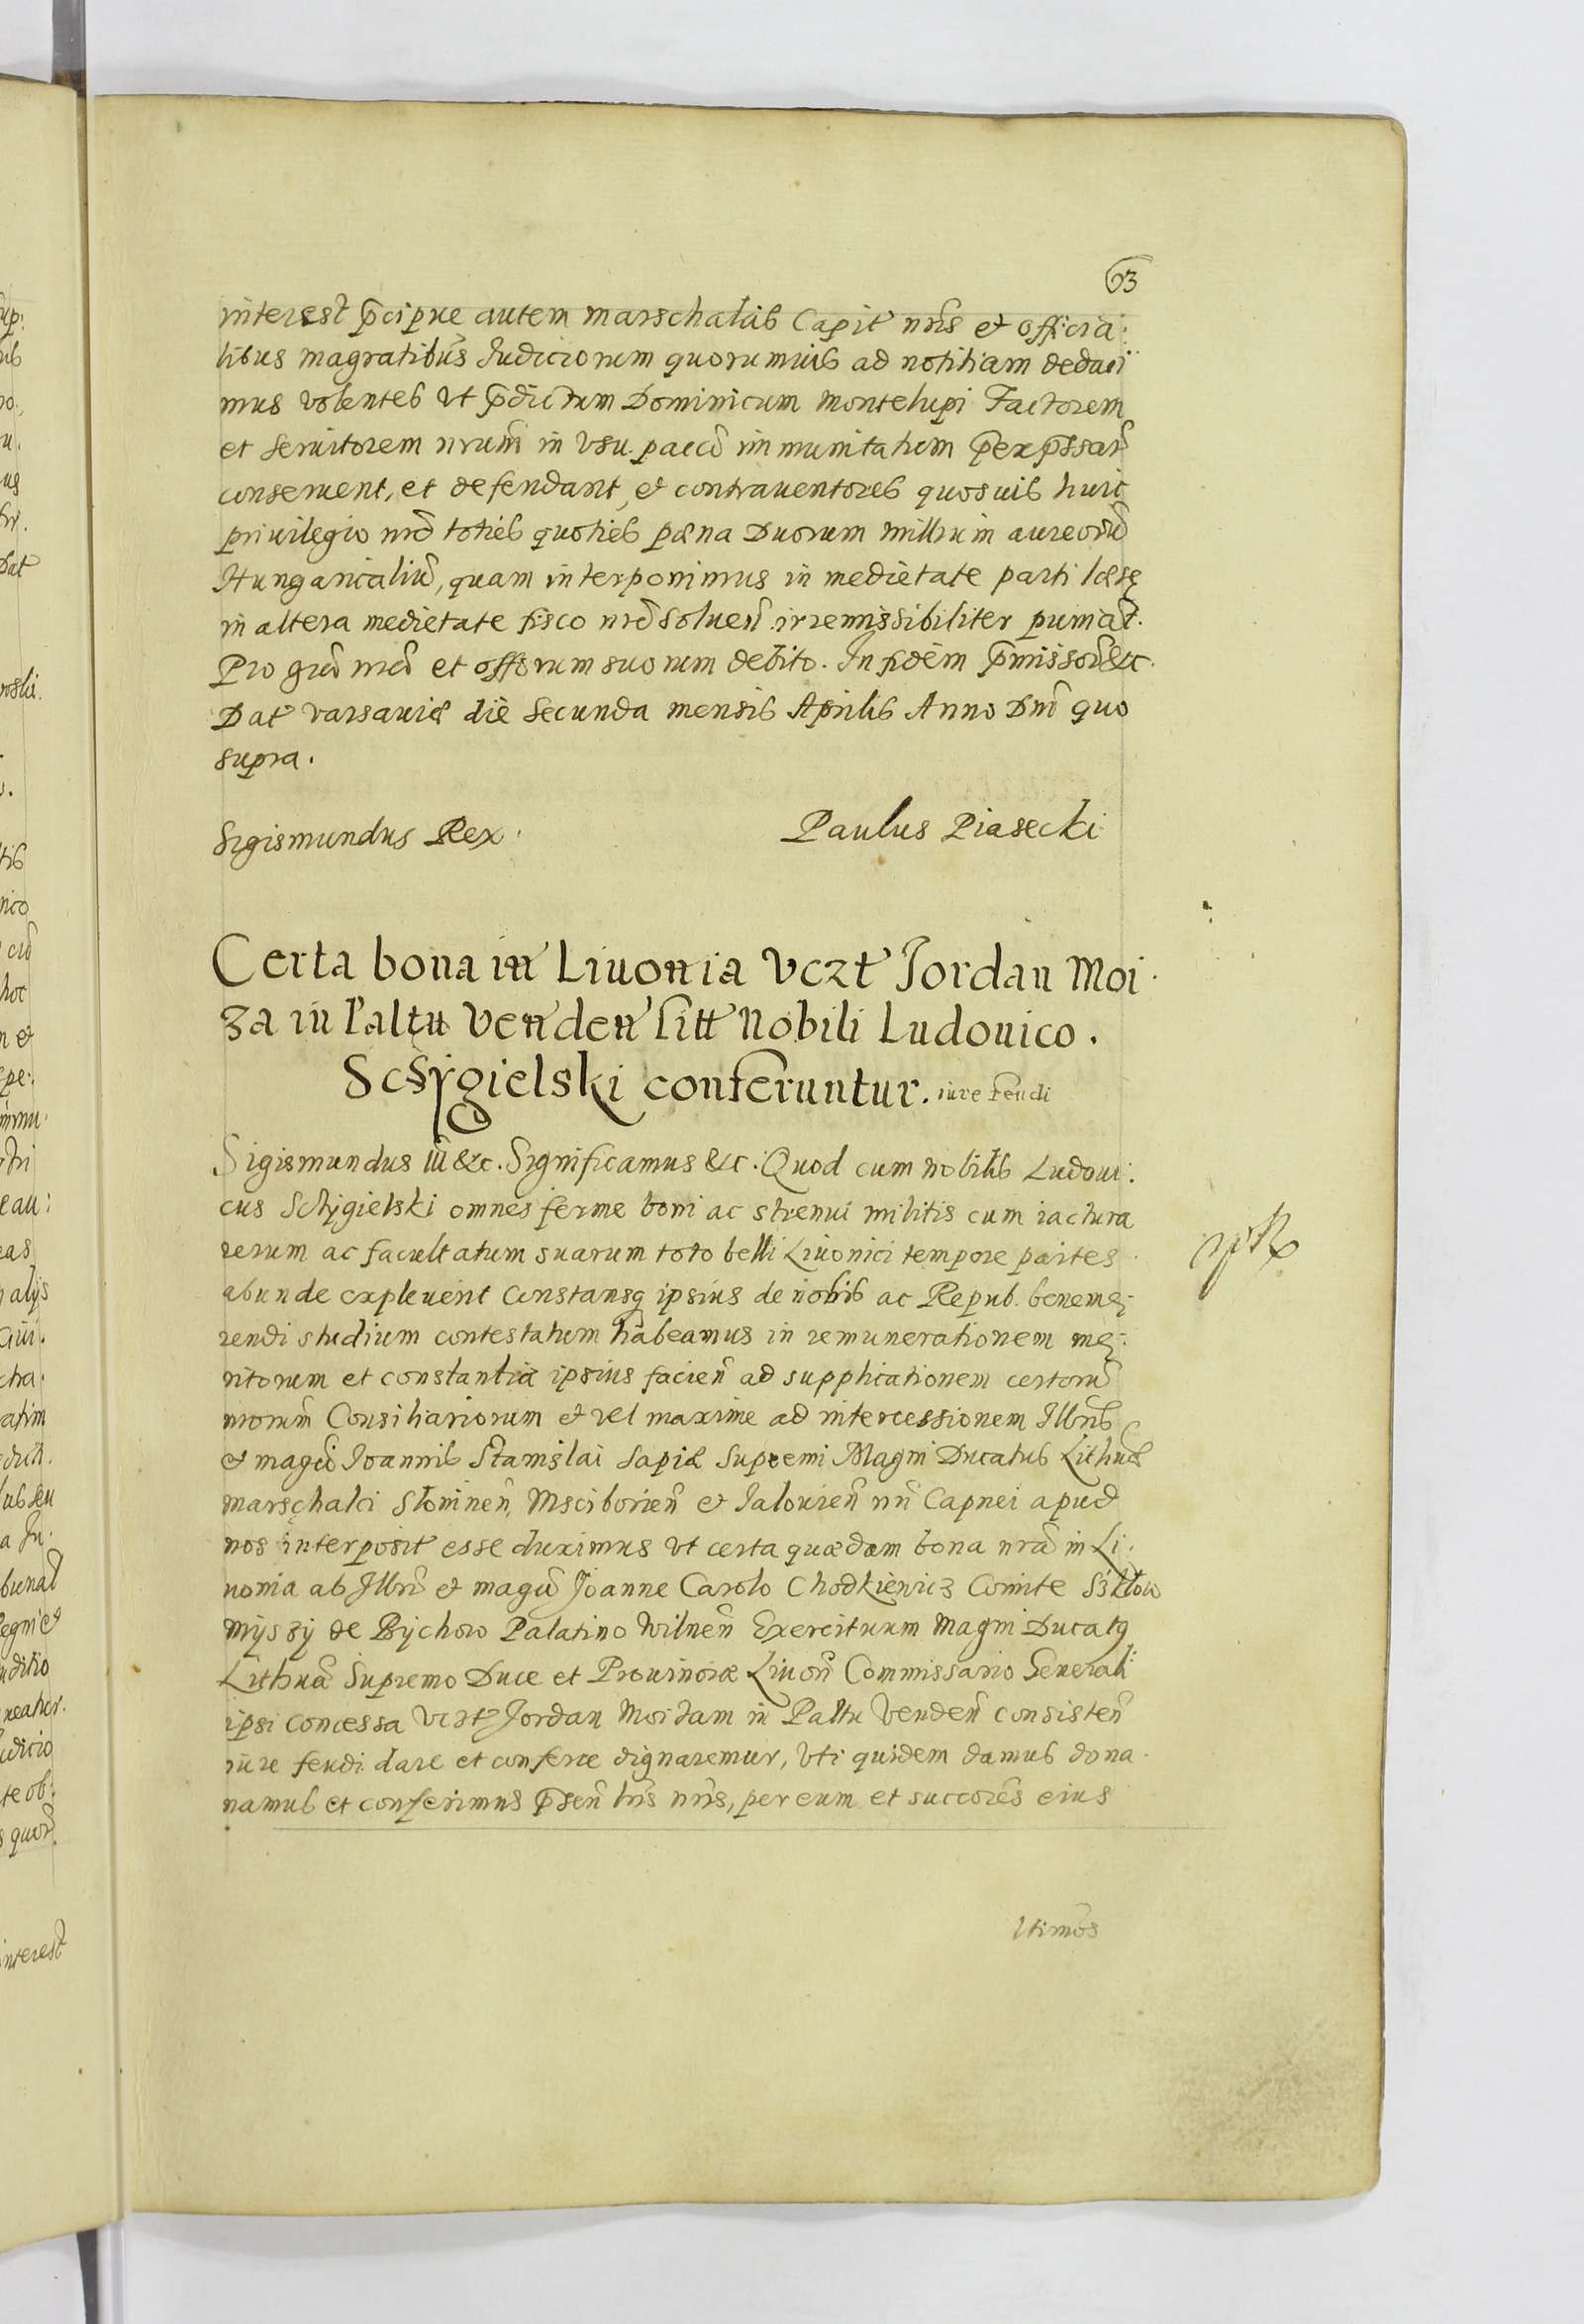 63
interest p̃cipue autem marschalis Capit nr̃is et officia:
libus magratibus Iudiciorum quorumuis ad notitiam deduci
mus volentes vt p̃dictum Dominicum Montelupi Factorem
et seruitorem nrum̃ in vsu pacco immunitatum p̃exp̃ssar̃
conseruent, et defendant, et contrauentores quosuis huic
priuilegio nrõ toties quoties pæna Duorum millium aureorũ
Hungaricaliũ, quam interponimus in medietate parti læsę
in altera medietate fisco nrõ solueñ irremissibiliter puniat̃.
Pro grã nrã et offorum suorum debito. In fidem p̃missor̃ &c.
Dat Varsauiæ die Secunda mensis Aprilis Anno Dñi quo
supra.
Sigismundus Rex.
Paulus Piasecki
Certa bona in Liuonia vczt Jordan Moi
za in Paltu Venden sitt Nobili Ludouico.
Scżygielski conferuntur. iure feudi
Sigismundus III &c. Significamus &c. Quod cum nobilis Ludoui:
cus Sczygielski omnes ferme boni ac strenui militis cum iactura
rerum ac facultatum suarum toto belli Liuonici tempore partes
abunde expleuerit constansq ipsius de nobis ac Repub. beneme:
rendi studium contestatum habeamus in remunerationem me:
ritorum et constantiæ ipsius facien̄ ad supplicationem certorũ
nrorum̃ Consiliariorum et vel maxime ad intercessionem Illr̃is
et magci Joannis Stanislai Sapiæ Supremi Magni Ducatus Lithuæ
marschalci Slonimen̄, Mscibouien̄ et Jalouien̄ nrĩ Capnei apud
nos interposit esse duximus vt certa quædam bona nrã in Li:
uonia ab Illr̃i et magco Joanne Carolo Chodkiewicz Comite Szklow
Myszÿ de Bychow Palatino Wilnen̄ Exercituum Magni Ducatq
Lithuæ Supremo Duce et Prouinciæ Liuon̄ Commissario Generali
ipsi concessa vczt Jordan Moizam in Paltu Venden̄ consisten̄
iure feudi dare et conferre dignaremur, vti quidem damus dona
namus et conferimus p̃sen̄ lrĩs nrĩs, per eum et succores eius
ltimos